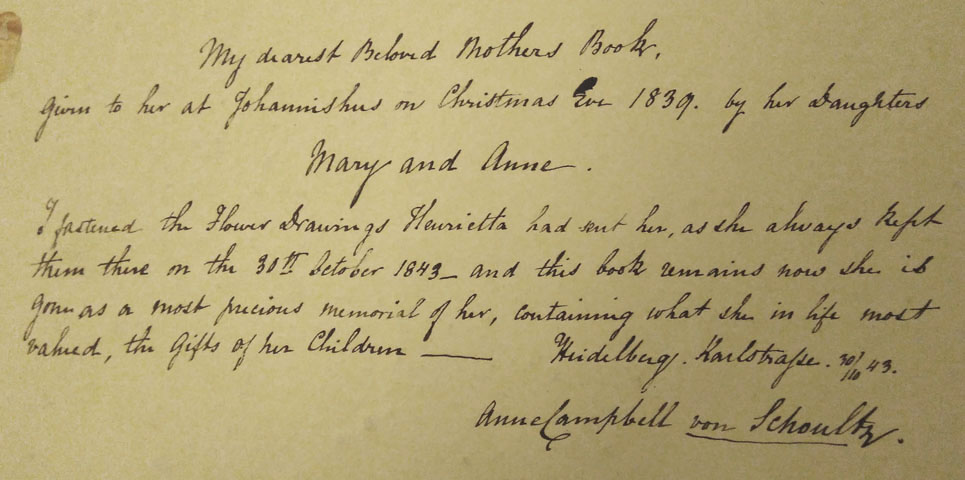 My dearest Beloved Mothers Book,
Given to her at Johannishus on Christmas Eve 1839. by her Daughters
Mary and Anne.
I fastened the Flower Drawings Henrietta had sent her, as she always kept
them there on the 30th October 1843 – and this book remains now she is
gone as a most precious memorial of her, containing what she in life most
valued, the Gifts of her Children —— Heidelberg. Karlstraſse. 30/10 43.
Anne Campbell von Schoultz.